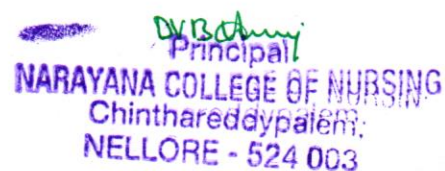 Principal
NARAYANA COLLEGE OF NURSING
Chinthareddypalem;
NELLORE - 524 003